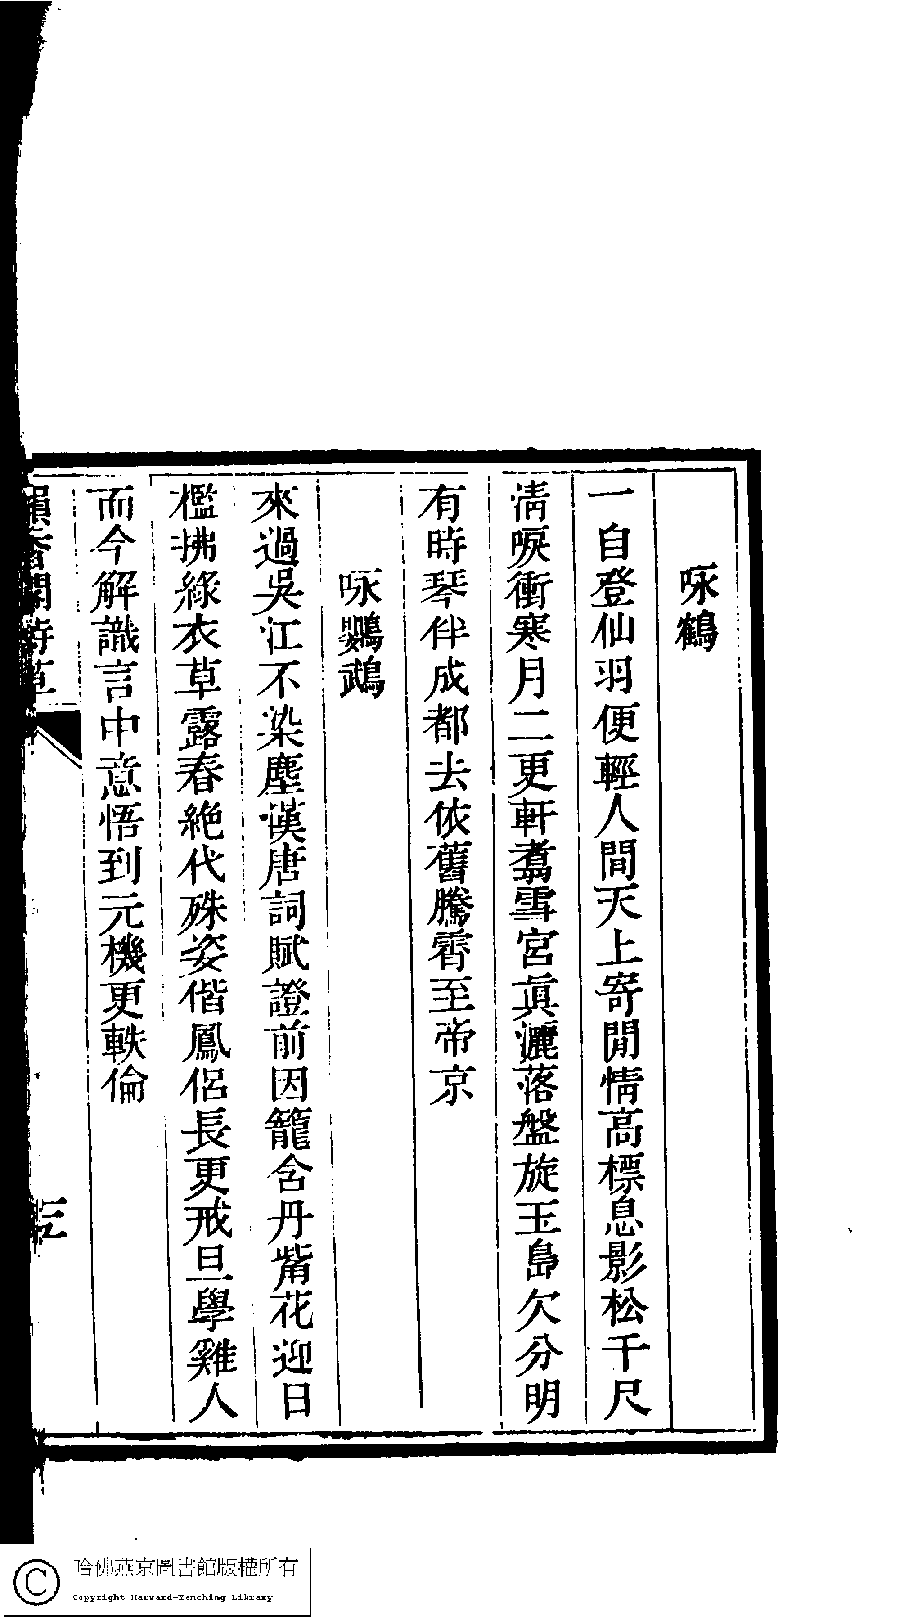 咏鶴
一自登仙羽便輕人間天上寄閒情高標息影松千尺
淸唳衝寒月二更軒翥雪宮眞灑落盤旋玉島欠分明
有時琴伴成都去依舊騰霄至帝京
咏鸚鵡
來過吳江不染塵漢唐詞賦證前因籠含丹觜花迎日
檻拂綠衣草露春絶代殊姿偕鳳侶長更戒旦學雞人
而今解識言中意悟到元機更軼倫
韻香閣詩草
三
哈佛燕京圖書館版權所有
Copyright Harvard-Yenching Library